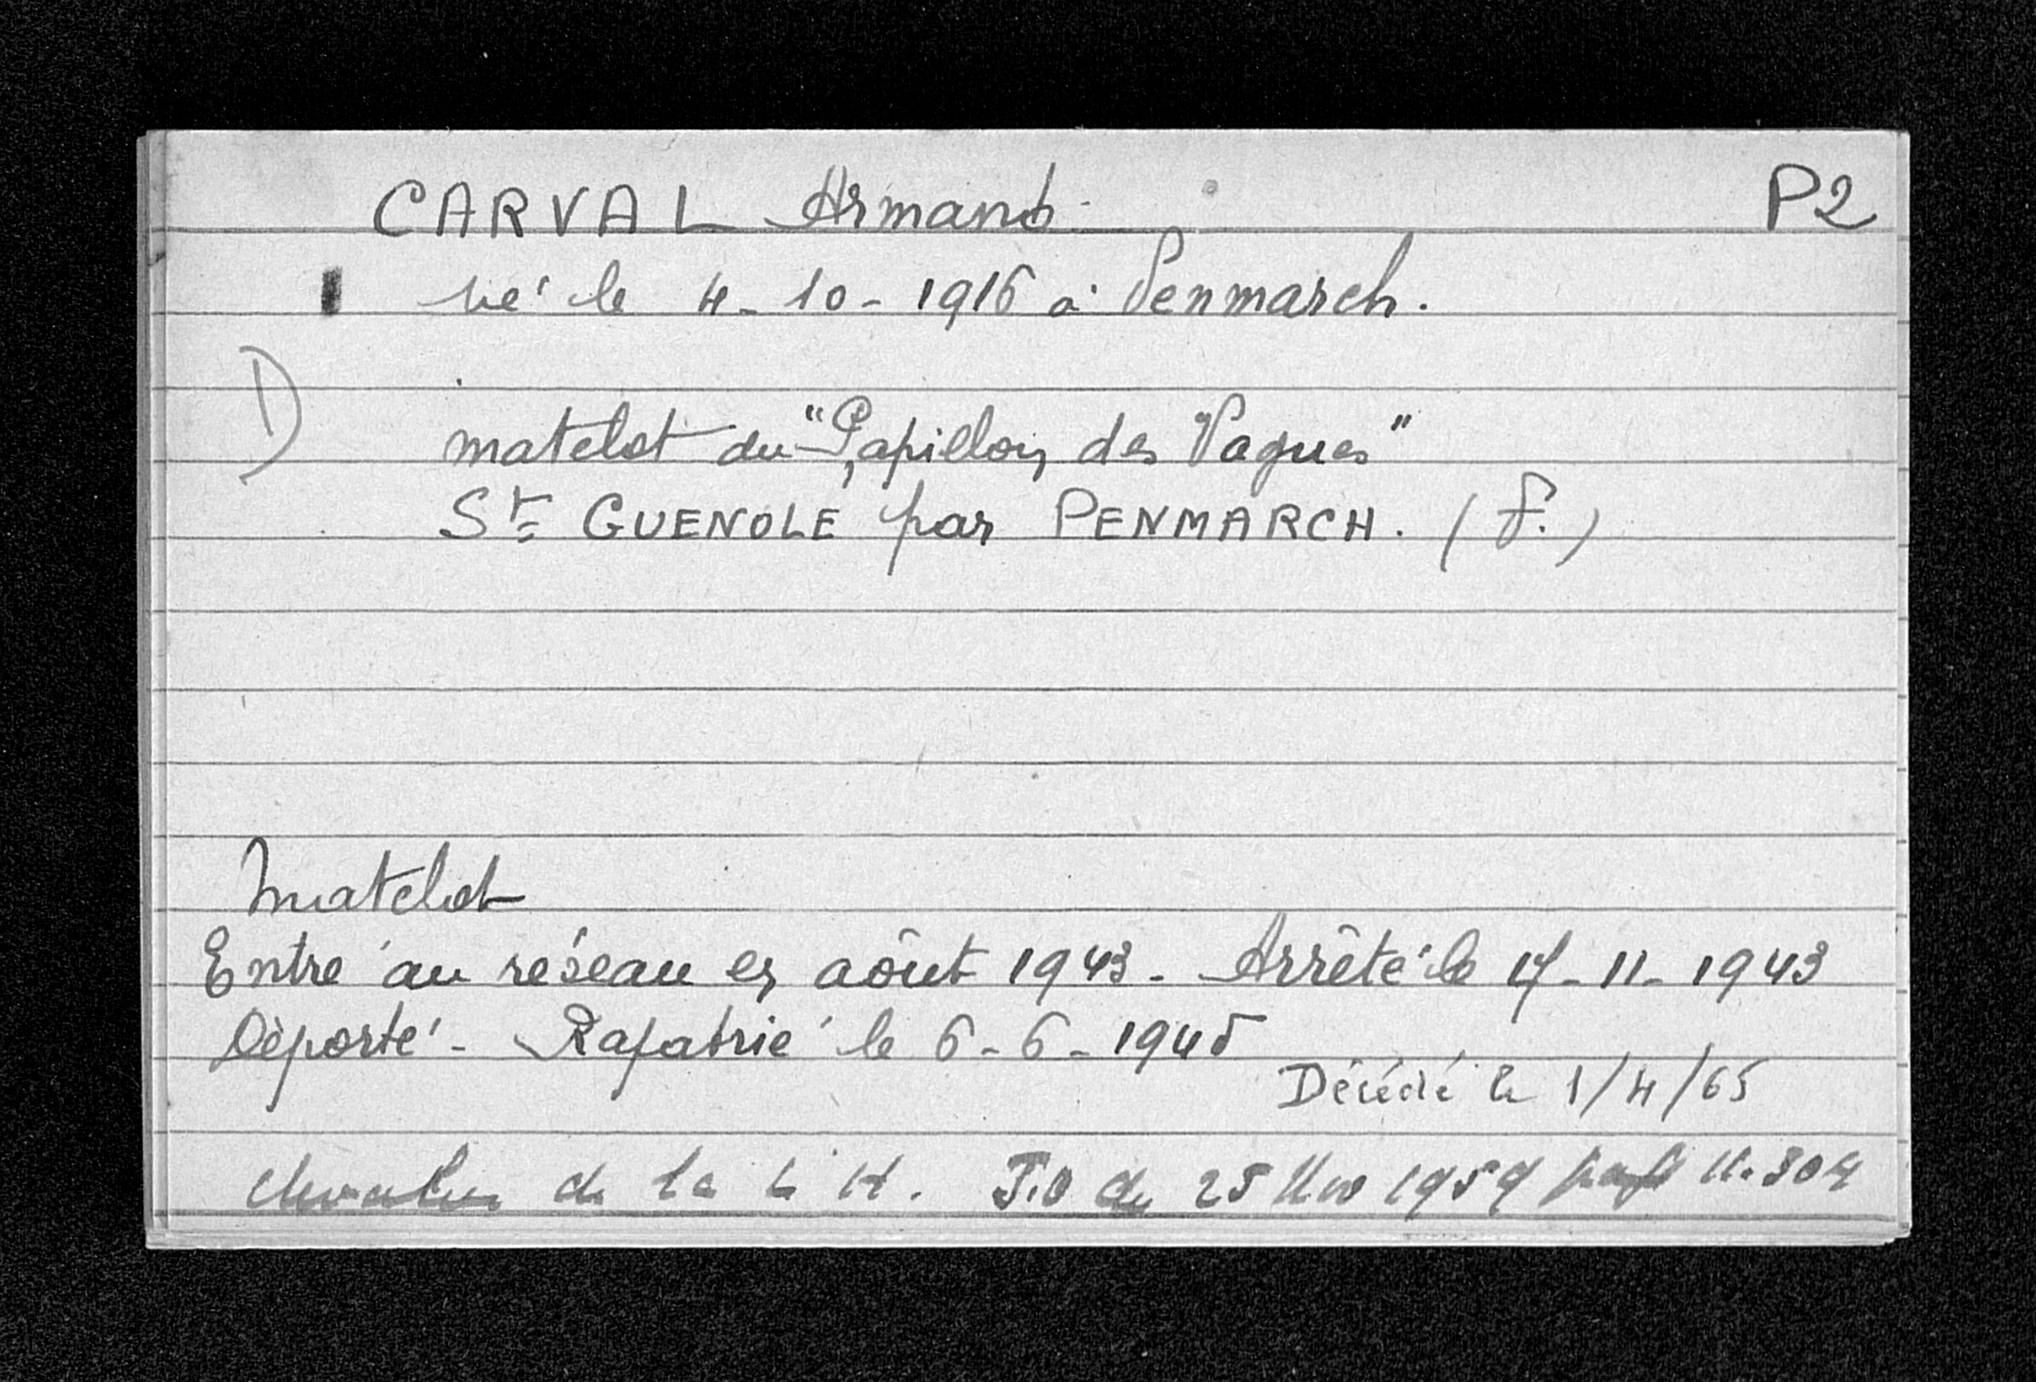 CARVAL Armand P2
né le 4-10-1916 à Penmarch.
D
matelot du "Papillon des Vagues"
St GUENOLÉ par PENMARCH. (F.)
Matelot
Entré au réseau en aôut 1943 - Arrêté le 17-11-1943
Déporté - Rapatrié le 6-6-1945
Décédé le 1/4/65
Chevalier de la L H. J.O du 25 Nov 1959 page 11.304